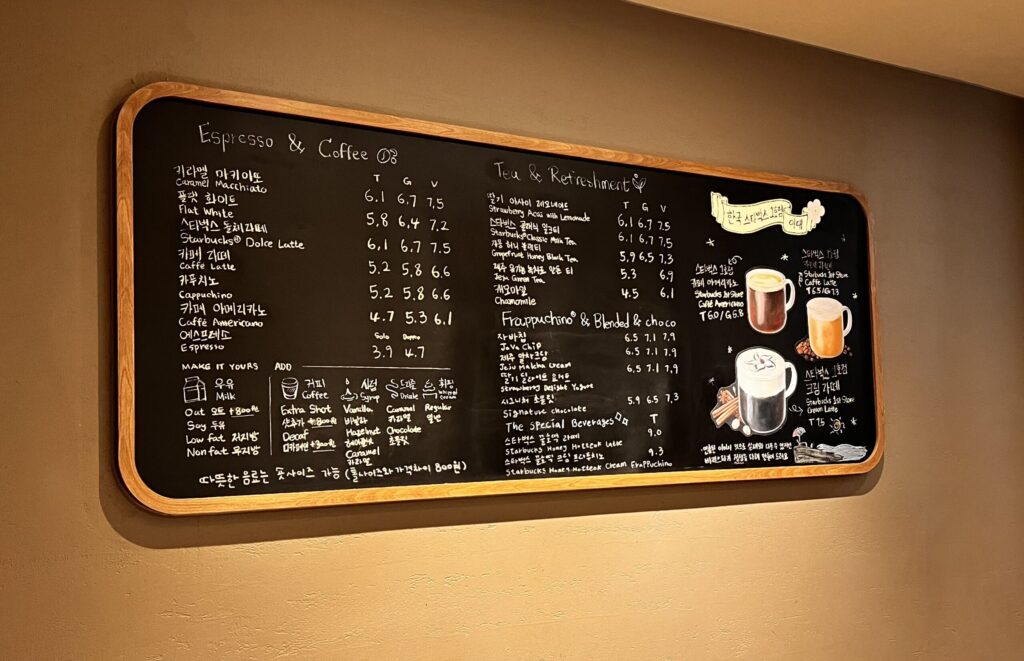 Espresso & Coffee
T G V
카라멜 마키아또 6.1 6.7 7.5
Caramel Macchiato
플랫 화이트 5.8 6.4 7.2
Flat White
스타벅스 돌체라떼 6.1 6.7 7.5
Starbucks® Dolce Latte
카페 라떼 5.2 5.8 6.6
Caffè Latte
카푸치노 5.2 5.8 6.6
Cappuccino
카페 아메리카노 4.7 5.3 6.1
Caffè Americano
에스프레소 Solo Doppio
Espresso 3.9 4.7
MAKE IT YOURS
우유
Milk
Oat 오트 +800원
Soy 두유
Low fat 저지방
Non fat 무지방
ADD
커피
Coffee
Extra Shot
샷추가 +800원
Decaf
디카페인 +300원
시럽
Syrup
Vanilla
바닐라
Hazelnut
헤이즐넛
Caramel
카라멜
드리즐
Drizzle
Caramel
카라멜
Chocolate
초콜릿
휘핑
Whipped Cream
Regular
일반
따뜻한 음료는 숏사이즈 가능 (톨사이즈와가격차이 800원)
Tea & Refreshment
T G V
딸기 아사이 레모네이드 6.1 6.7 7.5
Strawberry Acai with Lemonade
스타벅스 클래식 밀크티 6.1 6.7 7.5
Starbucks® Classic Milk Tea
자몽 허니 블랙티 5.9 6.5 7.3
Grapefruit Honey Black Tea
제주 유기농 녹차로 만든 티 5.3 6.9
Jeju Green Tea
캐모마일 4.5 6.1
Chamomile
Frappuchino® & Blended & choco
자바칩 6.5 7.1 7.9
Java Chip
제주 말차크림 6.5 7.1 7.9
Jeju Matcha Cream
딸기 딜라이트 요거트 6.5 7.1 7.9
Strawberry Delight Yogurt
시그니처 초콜릿 5.9 6.5 7.3
Signature chocolate
The Special Beverages T
스타벅스 꿀호떡 라떼 9.0
Starbucks Honey Hotteok Latte
스타벅스 꿀호떡 크림 프라푸치노 9.3
Starbucks Honey Hotteok Cream Frappuchino
한국 스타벅스 1호점
이대
스타벅스 1호점
카페 아메리카노
Starbucks 1st Store
Caffè Americano
T 6.0 / G 6.8
스타벅스 1호점
카페 라떼
Starbucks 1st Store
Caffè Latte
T 6.5 / G 7.3
스타벅스 1호점
크림 라떼
Starbucks 1st Store
Cream Latte
T 7.5